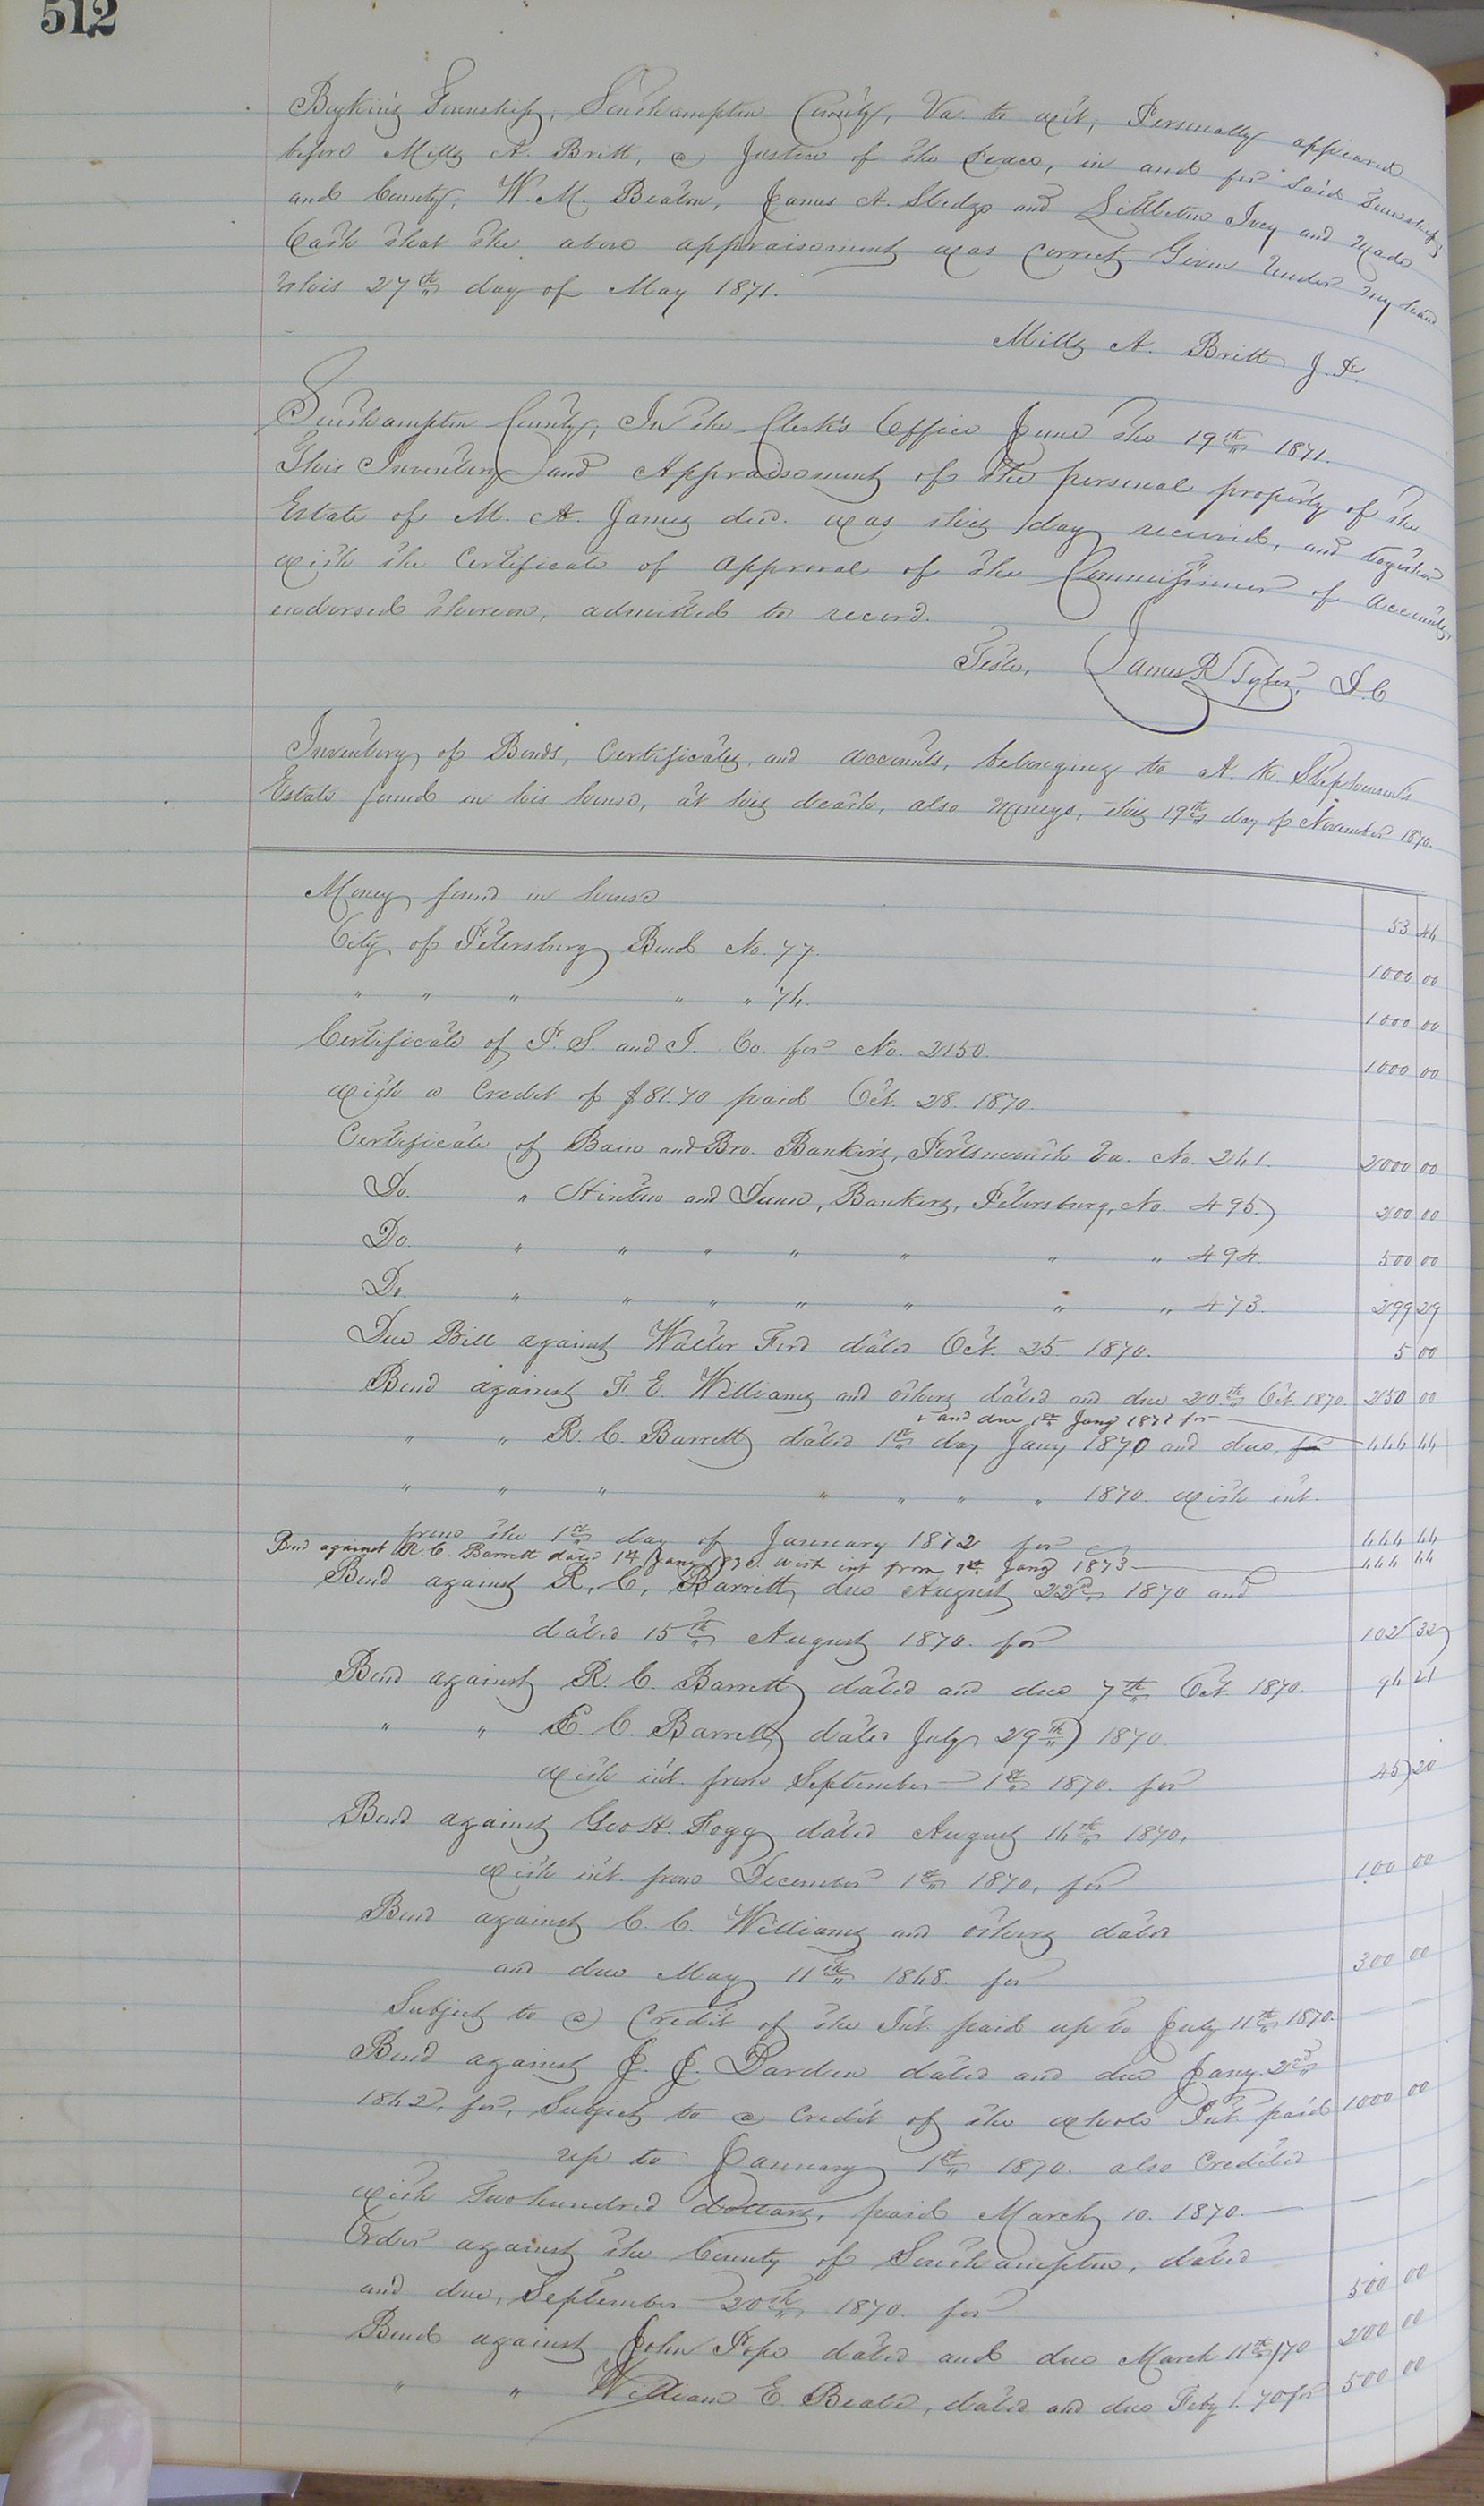 512
Boykins Township, Southampton County, Va. to wit, Personally appeared
before Mills A. Britt, a Justice of the Peace, in and for said Township
and County, W. M. Beaton, James A. Sledge and Littleton Ivey and made
Oath that the above appraisement was correct. Given under my hand
this 27th day of May 1871.
Mills A. Britt J.P.
Southampton County, In the Clerk's Office June the 19th 1871.
This Inventory and Appraisement of the personal property of the
Estate of M. A. James decd. was this day received, and together
with the Certificate of approval of the Commissioner of accounts,
endorsed thereon, admitted to record.
Teste, James R Tyler, D.C
Inventory of Bonds, Certificates, and accounts, belonging to A. K. Stephenson's
Estate found in his house, at his death, also moneys, this 19th day of November 1870.
Money found in house 53 44
City of Petersburg Bond No. 77. 1000 00
" " " " " 74. 1000 00
Certificate of P. S. and I. Co. for No. 2150. 1000 00
with a Credit of $81.70 paid Oct. 28. 1870.
Certificate of Bain and Bro. Bankers, Portsmouth Va. No. 241. 2000 00
Do. " Hinton and Dunn, Bankers, Petersburg, No. 495. 200 00
Do. " " " " " " " 494. 500 00
Do. " " " " " " " 473. 299 29
Due Bill against Walter Ford dated Oct. 25. 1870. 5 00
Bond against F. E. Williams and others dated and due 20th Oct 1870. 250 00
and due 1st Jany 1871 for
" " R. C. Barrett dated 1st day Jany 1870 and due, for 444 44
" " " " " " " 1870. with int.
from the 1st day of January 1872 for 444 44
Bond against R. C. Barrett dated 1st Jany 1870. with int from 1st Jany 1873 444 44
Bond against R. C. Barrett, due August 22nd 1870 and
dated 15th August 1870. for 102 32
Bond against R. C. Barrett dated and due 7th Oct. 1870. 94 21
" " E. C. Barrett dated July 29th 1870.
with int. from September 1st 1870. for 45 20
Bond against Geo H. Fogg dated August 16th 1870,
with int. from December 1st 1870, for 100 00
Bond against C. C. Williams and others dated
and due May 11th 1868. for 300 00
Subject to a Credit of the Int. paid up to July 11th 1870.
Bond against J. J. Darden dated and due Jany. 2nd
1862, for, Subject to a Credit of the whole Int. paid 1000 00
up to January 1st 1870. also Credited
with Two hundred dollars, paid March 10. 1870.
Order against the County of Southampton, dated
and due, September 20th 1870. for 500 00
Bond against John Pope dated and due March 11th /70 200 00
" " William E Beale, dated and due Feby 1. 70 for 500 00